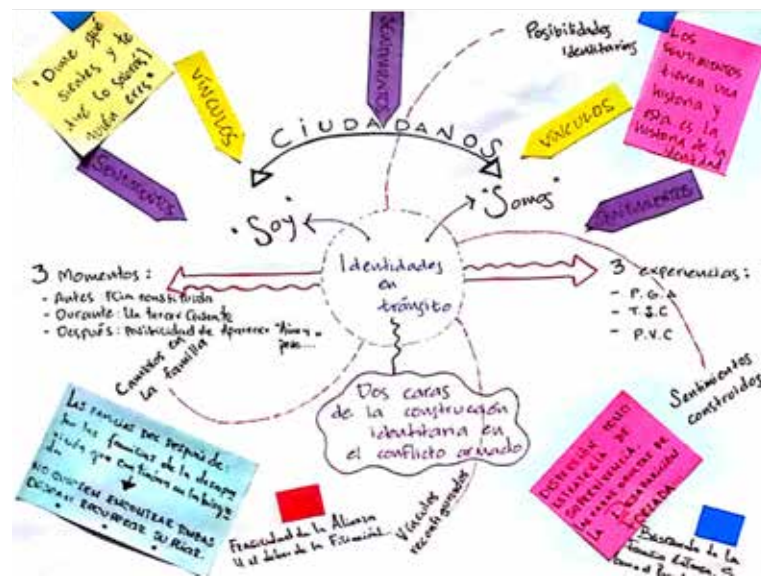 "Dime qué
sientes y te
diré (lo sabrás)
quién eres"
VÍNCULOS
SENTIMIENTOS
SENTIMIENTOS
CIUDADANOS
Posibilidades
Identitarias
LOS
SENTIMIENTOS
tienen una
historia y
esta es la
historia de la
VÍNCULOS
SENTIMIENTOS
"Soy"
"Somos"
Identidades
en
tránsito
3 Momentos:
- Antes: constituida
- Durante: Un tercer
- Después: Posibilidad de Aparecer "
pero....
3 experiencias:
- P.G.A
- T.S.C
- P.V.C
Cambios en
la familia
Sentimientos
construidos
Dos caras
de la construcción
identitaria en
el conflicto armado
Las familias del después:
Son las familias de la
que continúan en la
NO QUIEREN ENCONTRAR
DESEAN RECUPERAR SU
Fragilidad de la Alianza
el deber de la Filiación...
Vínculos
reconfigurados
DISTINCIÓN COMO
ESTRATEGIA DE
SUPERVIVENCIA.
LA DESAPARICIÓN
FORZADA...
Buscando de la